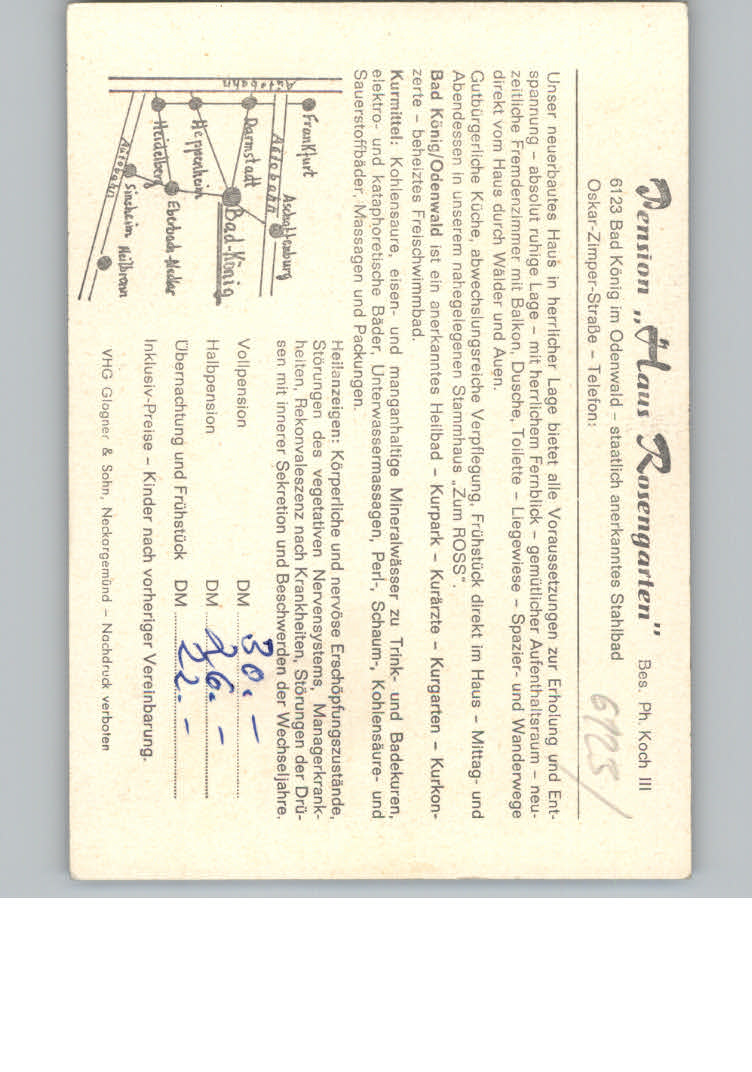 Pension „Haus Rosengarten” Bes. Ph. Koch III
6123 Bad König im Odenwald – staatlich anerkanntes Stahlbad
Oskar-Zimper-Straße – Telefon:
Unser neuerbautes Haus in herrlicher Lage bietet alle Voraussetzungen zur Erholung und Ent-
spannung – absolut ruhige Lage – mit herrlichem Fernblick – gemütlicher Aufenthaltsraum – neu-
zeitliche Fremdenzimmer mit Balkon, Dusche, Toilette – Liegewiese – Spazier- und Wanderwege
direkt vom Haus durch Wälder und Auen.
Gutbürgerliche Küche, abwechslungsreiche Verpflegung, Frühstück direkt im Haus – Mittag- und
Abendessen in unserem nahegelegenen Stammhaus „Zum ROSS“.
Bad König/Odenwald ist ein anerkanntes Heilbad – Kurpark – Kurärzte – Kurgarten – Kurkon-
zerte – beheiztes Freischwimmbad.
Kurmittel: Kohlensäure, eisen- und manganhaltige Mineralwässer zu Trink- und Badekuren,
elektro- und kataphoretische Bäder, Unterwassermassagen, Perl-, Schaum-, Kohlensäure- und
Sauerstoffbäder, Massagen und Packungen.
Heilanzeigen: Körperliche und nervöse Erschöpfungszustände,
Störungen des vegetativen Nervensystems, Managerkrank-
heiten, Rekonvaleszenz nach Krankheiten, Störungen der Drü-
sen mit innerer Sekretion und Beschwerden der Wechseljahre.
Vollpension DM 30.–
Halbpension DM 26.–
Übernachtung und Frühstück DM 22.–
Inklusiv-Preise – Kinder nach vorheriger Vereinbarung.
VHG Glogner & Sohn, Neckargemünd – Nachdruck verboten
Frankfurt
Aschaffenburg
Autobahn
Darmstadt
Bad-König
Autobahn
Heppenheim
Eberbach-Neckar
Heidelberg
Autobahn
Sinsheim
Heilbronn